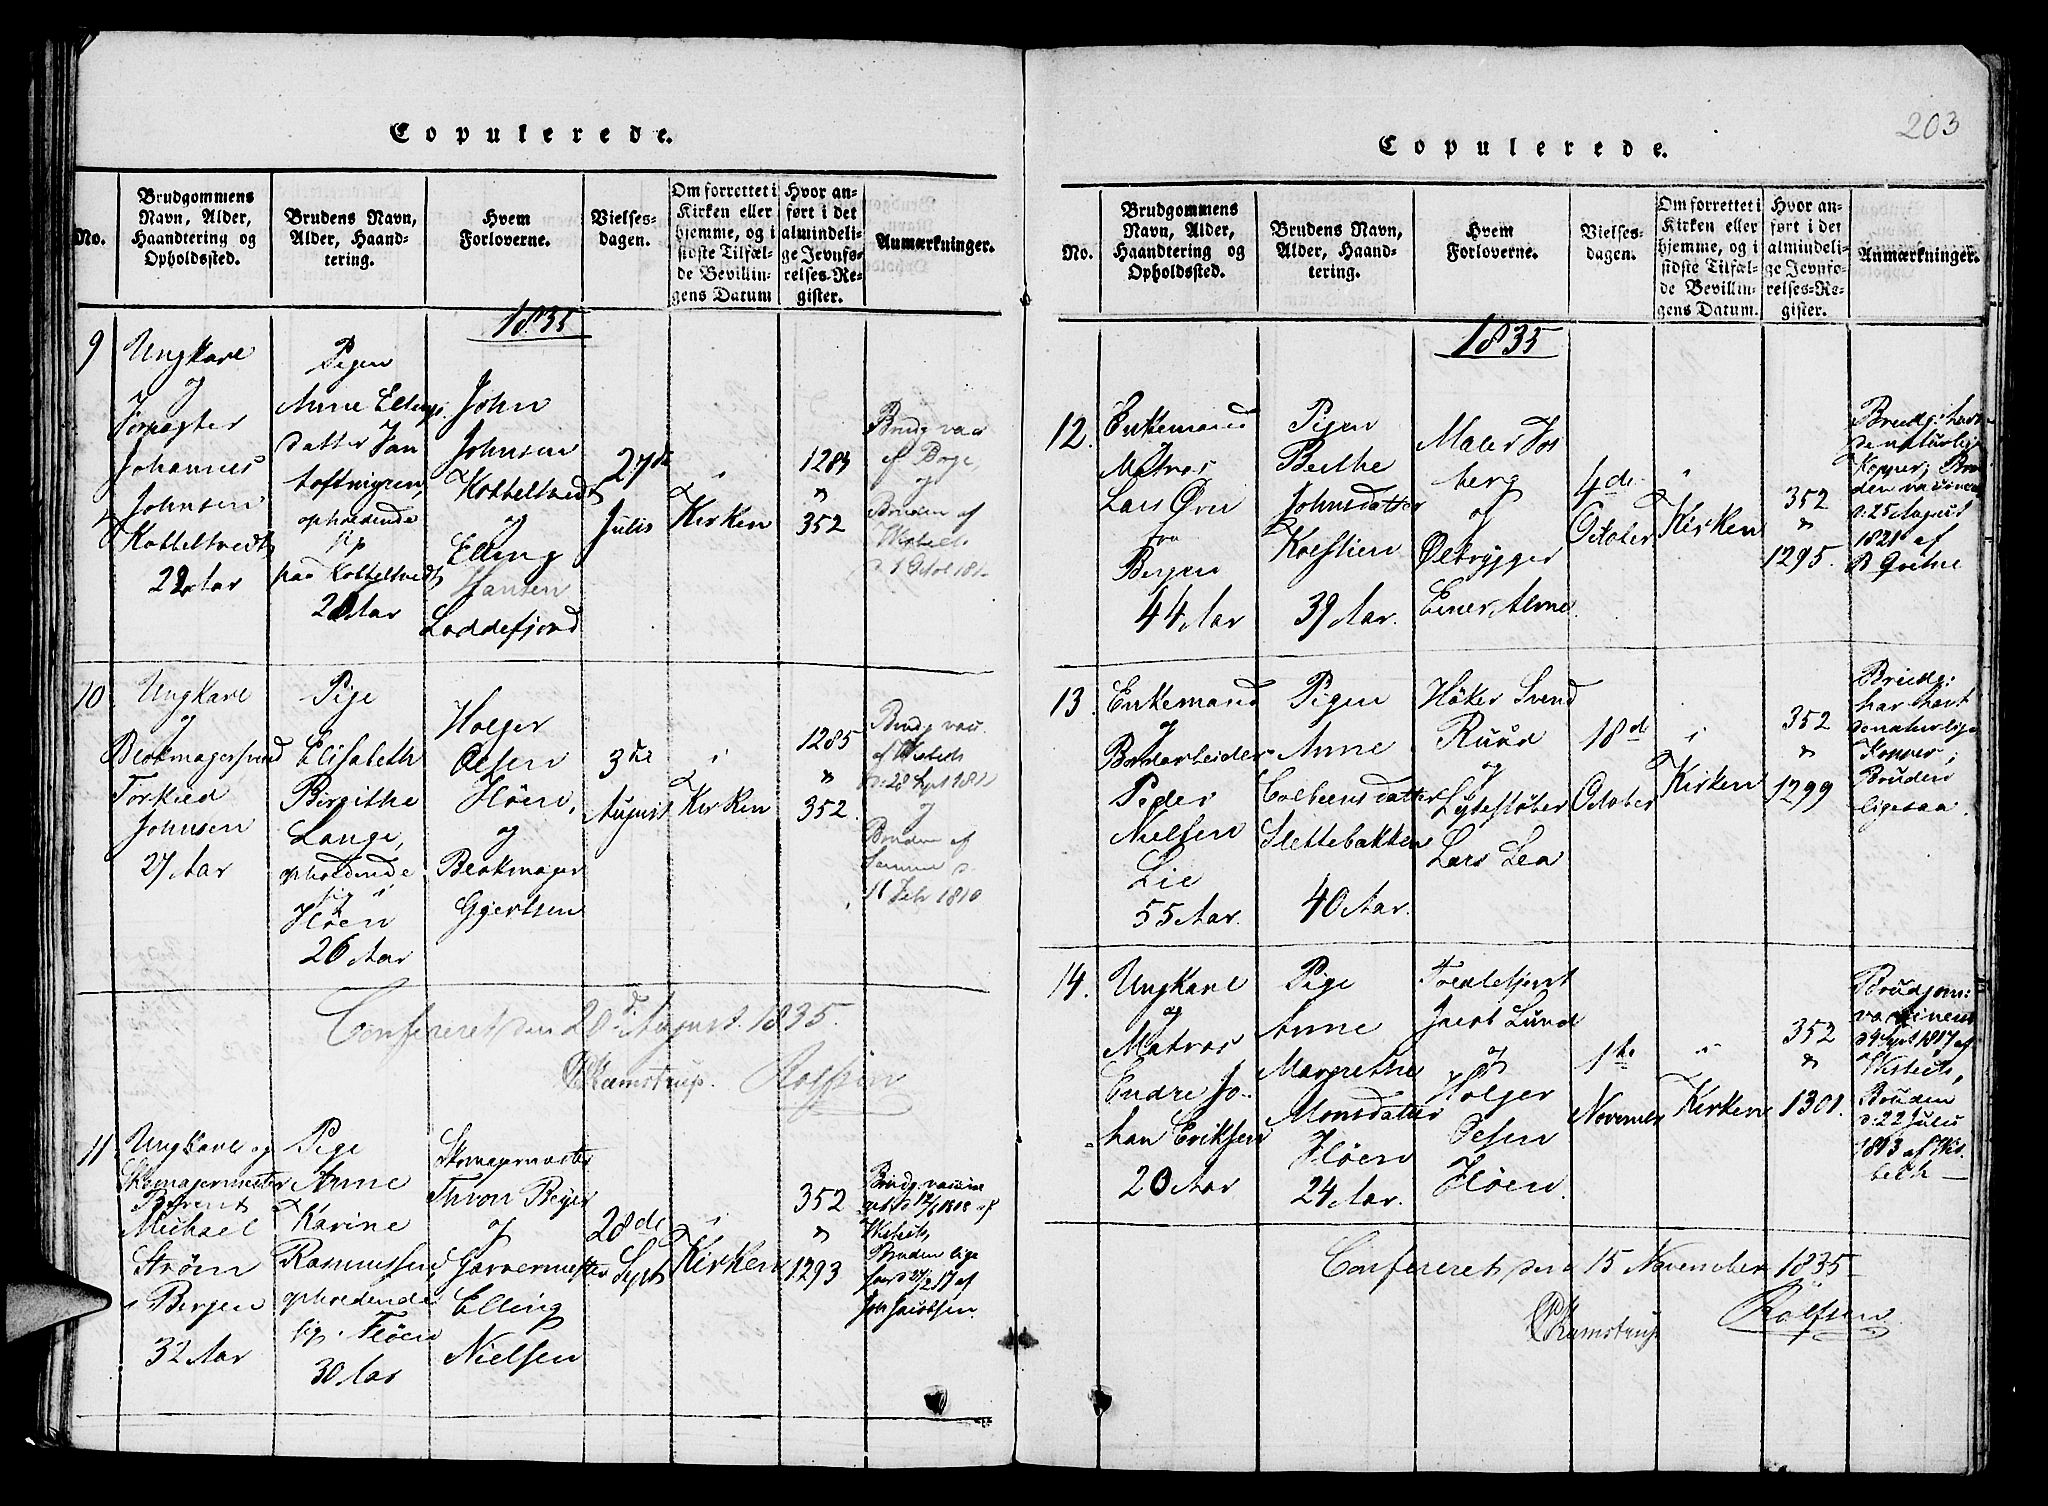 Copulerede.
No.
Brudgommens
Navn, Alder,
Haandtering og
Opholdssted.
Brudens Navn,
Alder, Haand-
tering.
Hvem
Forloverne.
Vielses-
dagen.
Om forrettet i
Kirken eller
hjemme, og i
sidste Tilfæl-
de Bevillin-
gens Datum
Hvor an-
ført i det
almindeli-
ge Jevnfø-
relses-Re-
gister.
Anmærkninger.
1835
9
Ungkarl
og
Johannes
Johnsen
Kobbeltvedt
22 Aar
Pigen
Anne Ellings
datter
opholdende
sig
paa Kobbeltvedt
28 Aar
John
Johnsen
Kobbeltvedt
og
Elling
Hansen
Loddefjord
27de
Julii
i
Kirken
1284
"
352
Brudg vac
af Boge
og
Bruden af
10
Ungkarl
og
Blokmagersvend
Torkild
Johnsen
27 Aar
Pige
Elisabeth
Birgithe
Lange,
opholdende
sig i
Fløen
26 Aar
Holger
Olsen
Fløen,
og
Blokmager
Gjertsen
3die
August
i
Kirken
1285
"
352
Brudg vac.
af Wisbech
d: 28 Sept 181
og
Bruden af
Samme d.
11 Feb 1810
Confereret den 20d August 1835.
Ramstrup. Rolfsen
11
Ungkarl og
Skomagermester
Berent
Michael
Strøm
i Bergen
32 Aar
Pige
Anne
Karine
Rasmussen,
opholdende
sig i Fløen
30 Aar
Skomagermester
Thron Beyer
og
Garvermester
Elling
Nielsen
28de
Sept
i
Kirken
352
"
1293
Brudg. vaccine
Bruden lige
af
Joh Jacobsen.
203
Copulerede.
No.
Brudgommens
Navn, Alder,
Haandtering og
Opholdssted.
Brudens Navn,
Alder, Haand-
tering.
Hvem
Forloverne.
Vielses-
dagen.
Om forrettet i
Kirken eller
hjemme, og i
sidste Tilfæl-
de Bevillin-
gens Datum.
Hvor an-
ført i det
almindeli-
ge Jevnfø-
relses-Re-
gister.
Anmærkninger.
1835
12.
Enkemand
Matros
Lars
fra
Bergen
44 Aar
Pigen
Berthe
Johnsdatter
Kolstien
39 Aar.
Maler Vos
berg
og
Ølbrygger
4de
October
i
Kirken
352
"
1295.
Brudg: hav
de naturlige
Kopper; Bru
den vaccineret
d: 25 August
1821 af
13.
Enkemand
og
Peder
Nielsen
Lie
55 Aar.
Pigen
Anne
Colbeensdatter
Slettebakken
40 Aar.
Höker Svend
Ruud
og
Lars Lea
18de
October
i
Kirken
352
"
1299
Brudg:
har havt
de naturlige
Kopper;
Bruden
ligesaa.
14.
Ungkarl
og
Matros
Endre Jo-
han Eriksen
20 Aar
Pige
Anne
Margrethe
Monsdatter
Fløen
24 Aar.
Toldbetjent
Jacob Lund
og
Holger
Olsen
Fløen.
1ste
November
i
Kirken
352
"
1301.
Brudgom:
vaccineret
d 9 Sept 1817 af
Wisbech,
Bruden
d: 22 Julii
1813 af Wis
bech —
Confereret den 15 November 1835
Ramstrup Rolfsen